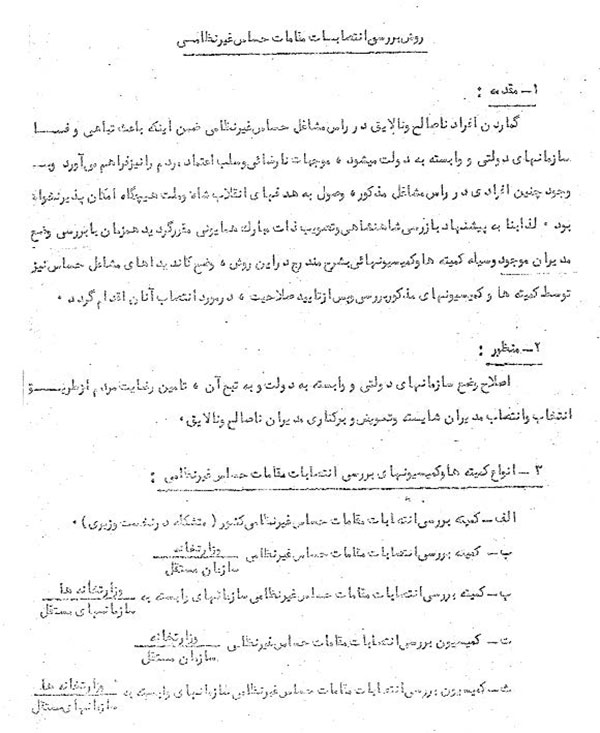 روش بررسی انتصابات مقامات حساس غیرنظامی
۱- مقدمه :
گماردن افراد ناصالح و نالایق در راس مشاغل حساس غیرنظامی ضمن اینکه باعث تباهی و فساد
سازمانهای دولتی و وابسته به دولت میشود ، موجبات نارضائی و سلب اعتماد مردم را نیز فراهم می‌آورد و با
وجود چنین افرادی در راس مشاغل مذکور ، وصول به هدفهای انقلاب شاه و ملت هیچگاه امکان پذیر نخواهد
بود . لذا بنا به پیشنهاد بازرسی شاهنشاهی و تصویب ذات مبارک همایونی مقرر گردید همزمان با بررسی وضع
مدیران موجود وسیله کمیته ها و کمیسیونهائی بشرح مندرج در این روش ، وضع کاندیداهای مشاغل حساس نیز
توسط کمیته ها و کمیسیونهای مذکور بررسی و پس از تایید صلاحیت ، در مورد انتصاب آنان اقدام گردد .
۲- منظور :
اصلاح وضع سازمانهای دولتی و وابسته به دولت و به تبع آن ، تامین رضایت مردم از طریق
انتخاب و انتصاب مدیران شایسته و تعویض و برکناری مدیران ناصالح و نالایق .
۳- انواع کمیته ها و کمیسیونهای بررسی انتصابات مقامات حساس غیرنظامی :
الف- کمیته بررسی انتصابات مقامات حساس غیرنظامی کشور ( متشکله در نخست وزیری ) .
ب- کمیته بررسی انتصابات مقامات حساس غیرنظامی وزارتخانه
سازمان مستقل
پ- کمیته بررسی انتصابات مقامات حساس غیرنظامی سازمانهای وابسته به وزارتخانه ها
سازمانهای مستقل
ت- کمیسیون بررسی انتصابات مقامات حساس غیرنظامی وزارتخانه
سازمان مستقل
ث- کمیسیون بررسی انتصابات مقامات حساس غیرنظامی سازمانهای وابسته به وزارتخانه ها
سازمانهای مستقل